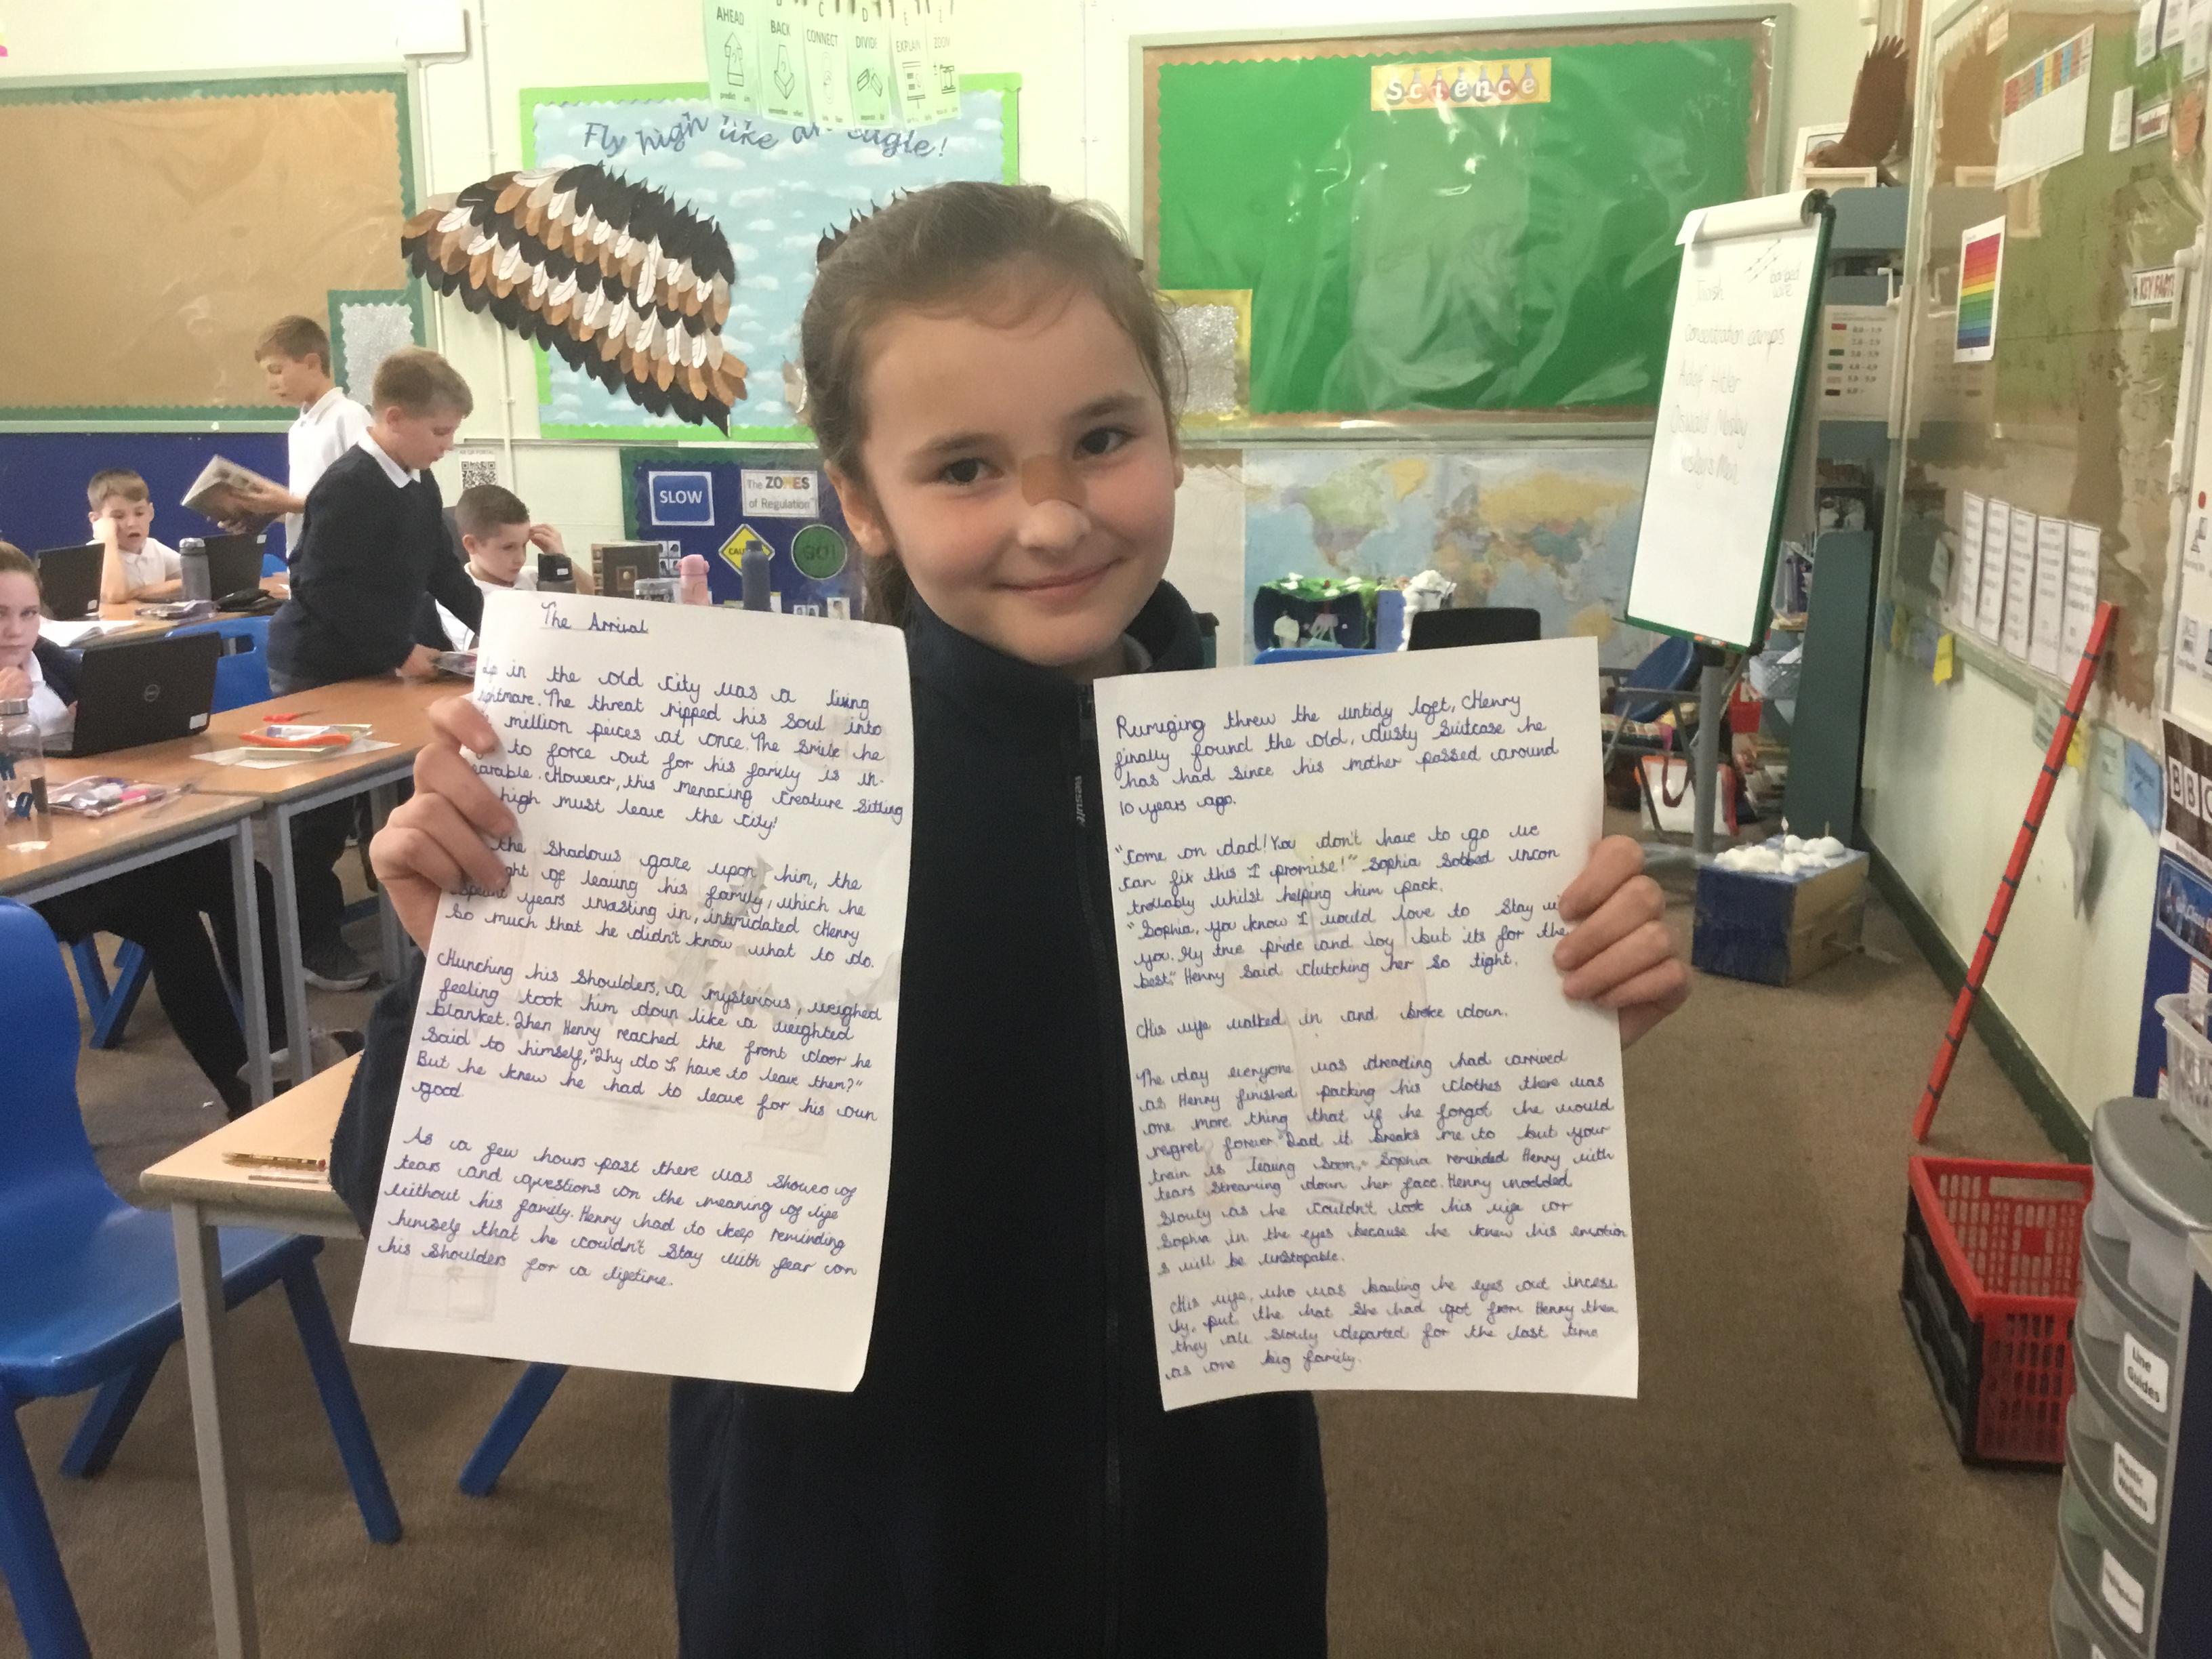 AHEAD
BACK
CONNECT
DIVIDE
EXPLAIN
ZOOM
Fly high like an eagle!
Science
SLOW
The ZONES
of Regulation
GO!
Concentration camps
Adolf Hitler
KEY FACTS
The Arrival
in the old city was a living
The threat ripped his soul into
million peices at once. The smile he
to force out for his family is un-
earable. However, this menacing creature sitting
high must leave the city!
the shadows gaze upon him, the
of leaving his family, which he
spent years investing in, intimidated Henry
so much that he didn't know what to do.
Hunching his shoulders, a mysterious, weighed
feeling took him down like a weighted
blanket. When Henry reached the front door he
said to himself, "Why do I have to leave them?"
But he knew he had to leave for his own
good.
As a few hours past there was of
tears and questions on the meaning of life
without his family. Henry had to keep reminding
himself that he couldn't stay with fear on
his shoulders for a lifetime.
Rumuging threw the untidy loft, Henry
finally found the old, dusty suitcase he
has had since his mother passed around
10 years ago.
"Come on dad! You don't have to go we
can fix this I promise!" Sophia sobbed uncon
trollably whilst helping him pack.
"Sophia, you know I would love to stay
you. My true pride and joy but its for the
best." Henry said clutching her so tight.
His wife walked in and broke down.
The day everyone was dreading had carrived
as Henry finished packing his clothes there was
one more thing that if he forgot he would
regret forever. "Dad it breaks me to but your
train is leaving soon," Sophia reminded Henry with
tears streaming down her face. Henry nodded
slowly as he couldn't look his wife or
Sophia in the eyes because he knew his emotion
s will be unstopable.
His wife, who was bawling he eyes out
ly, put the hat she had got from Henry then
they all slowly departed for the last time
as one big family.
DELL
Line
Guides
Plastic
Wallets